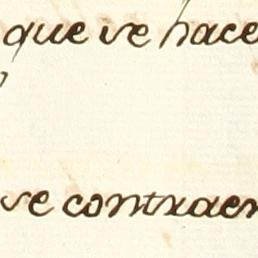 que se hace
se contraen